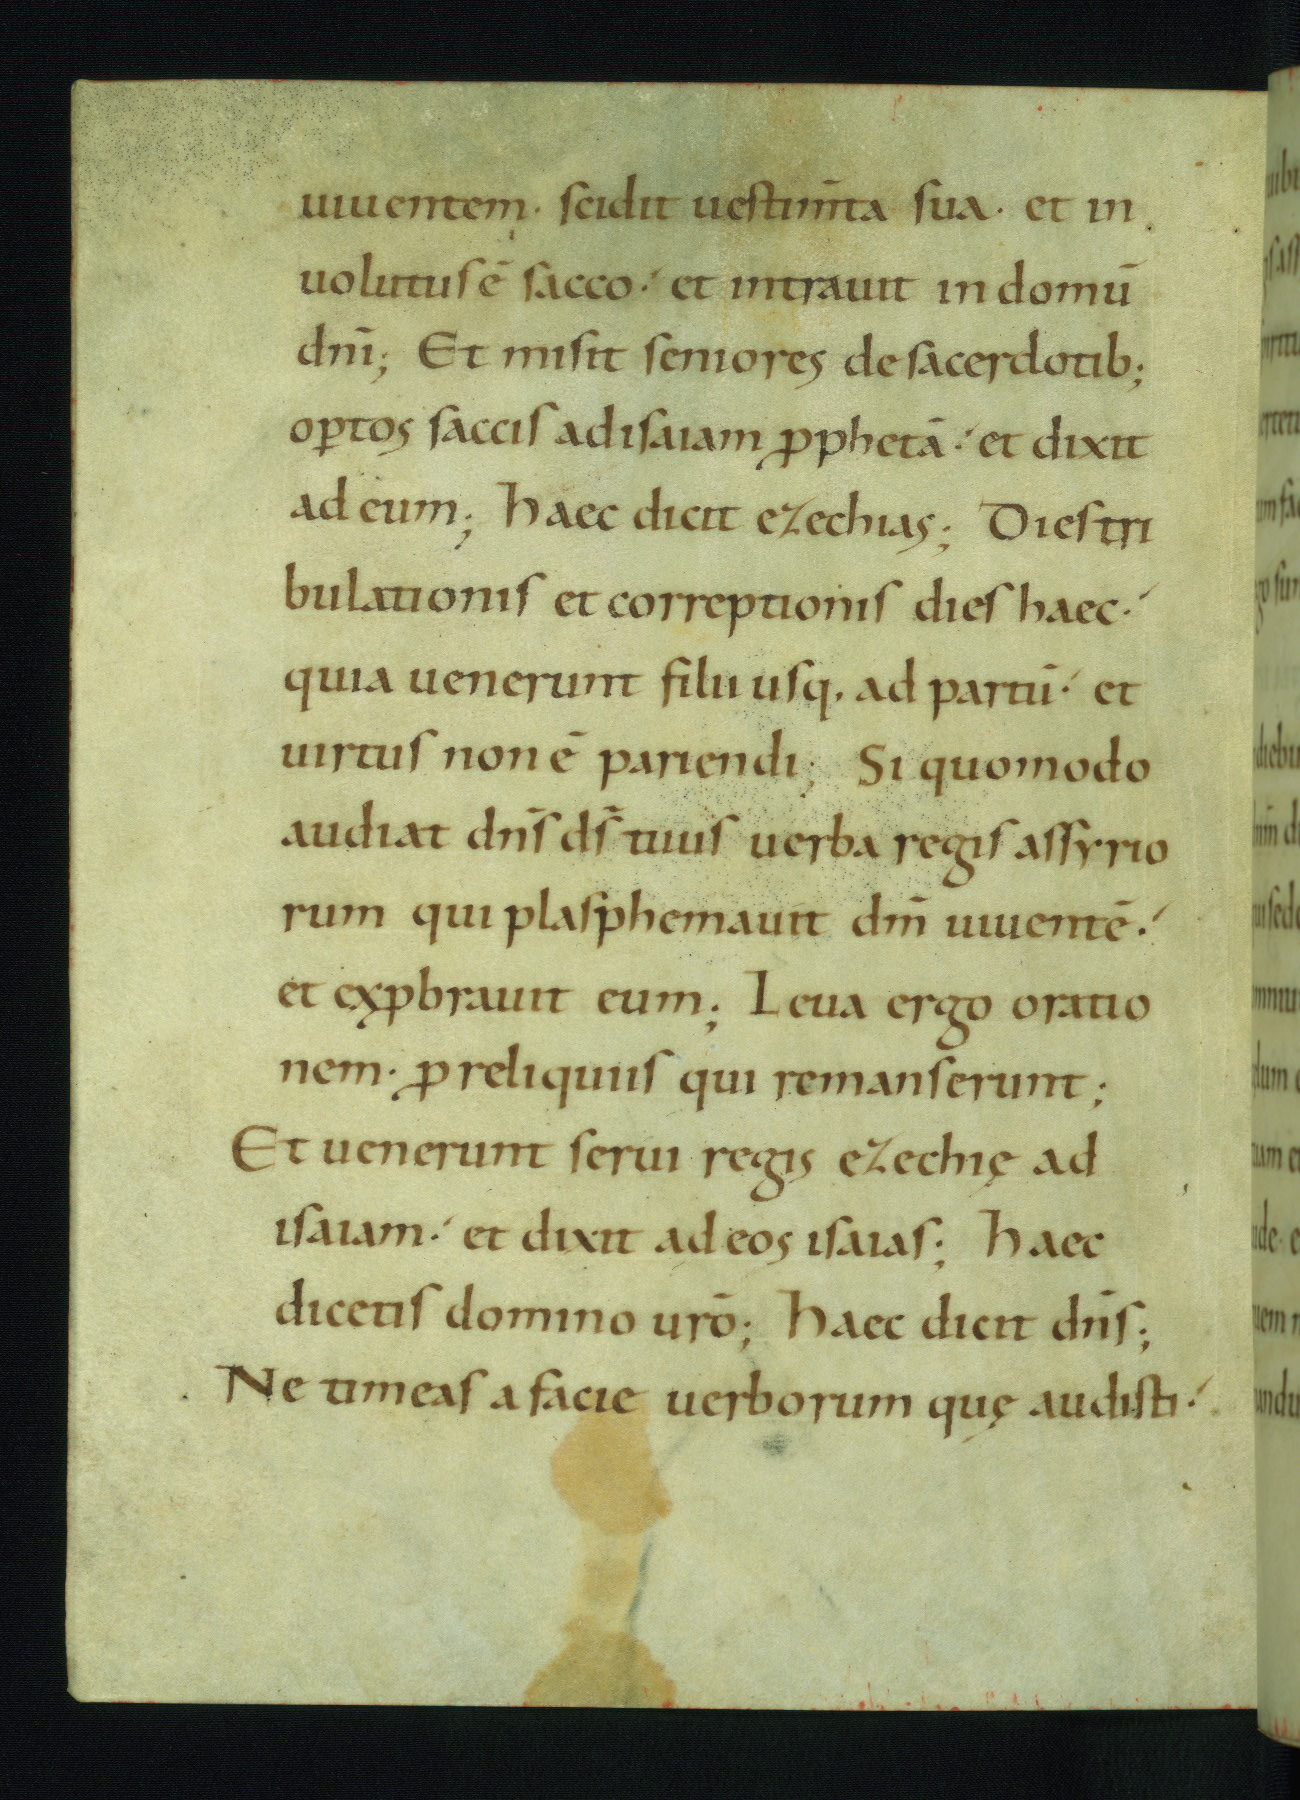 uiuentem· scidit uestim̄ta sua· et in
uolutus ē sacco·́ et intrauit in domū
dnī; Et misit seniores de sacerdotib;
oꝑtos saccis ad isaiam ꝓphetā·́ et dixit
ad eum; haec dicit ezechias; Dies tri
bulationis et correptionis dies haec·́
quia uenerunt filii usq· ad partū·́ et
uirtus non ē pariendi; Si quomodo
audiat dn̄s ds̄ tuus uerba regis assyrio
rum qui plasphemauit dm̄ uiuentē·́
et exꝓbrauit eum; Leua ergo oratio
nem· ꝓ reliquiis qui remanserunt;
Et uenerunt serui regis ezechię ad
isaiam·́ et dixit ad eos isaias; haec
dicetis domino urō; haec dicit dn̄s;
Ne timeas a facie uerborum quę audisti·́